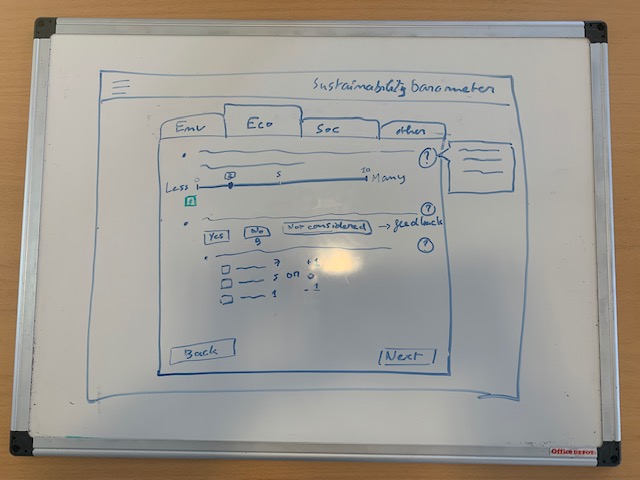 Sustainability barometer
Env Eco Soc other
?
Less 0 5 10 Many
1
Yes No Not considered → feedback ?
?
7
5 on
1 -1
Back Next
Office Depot